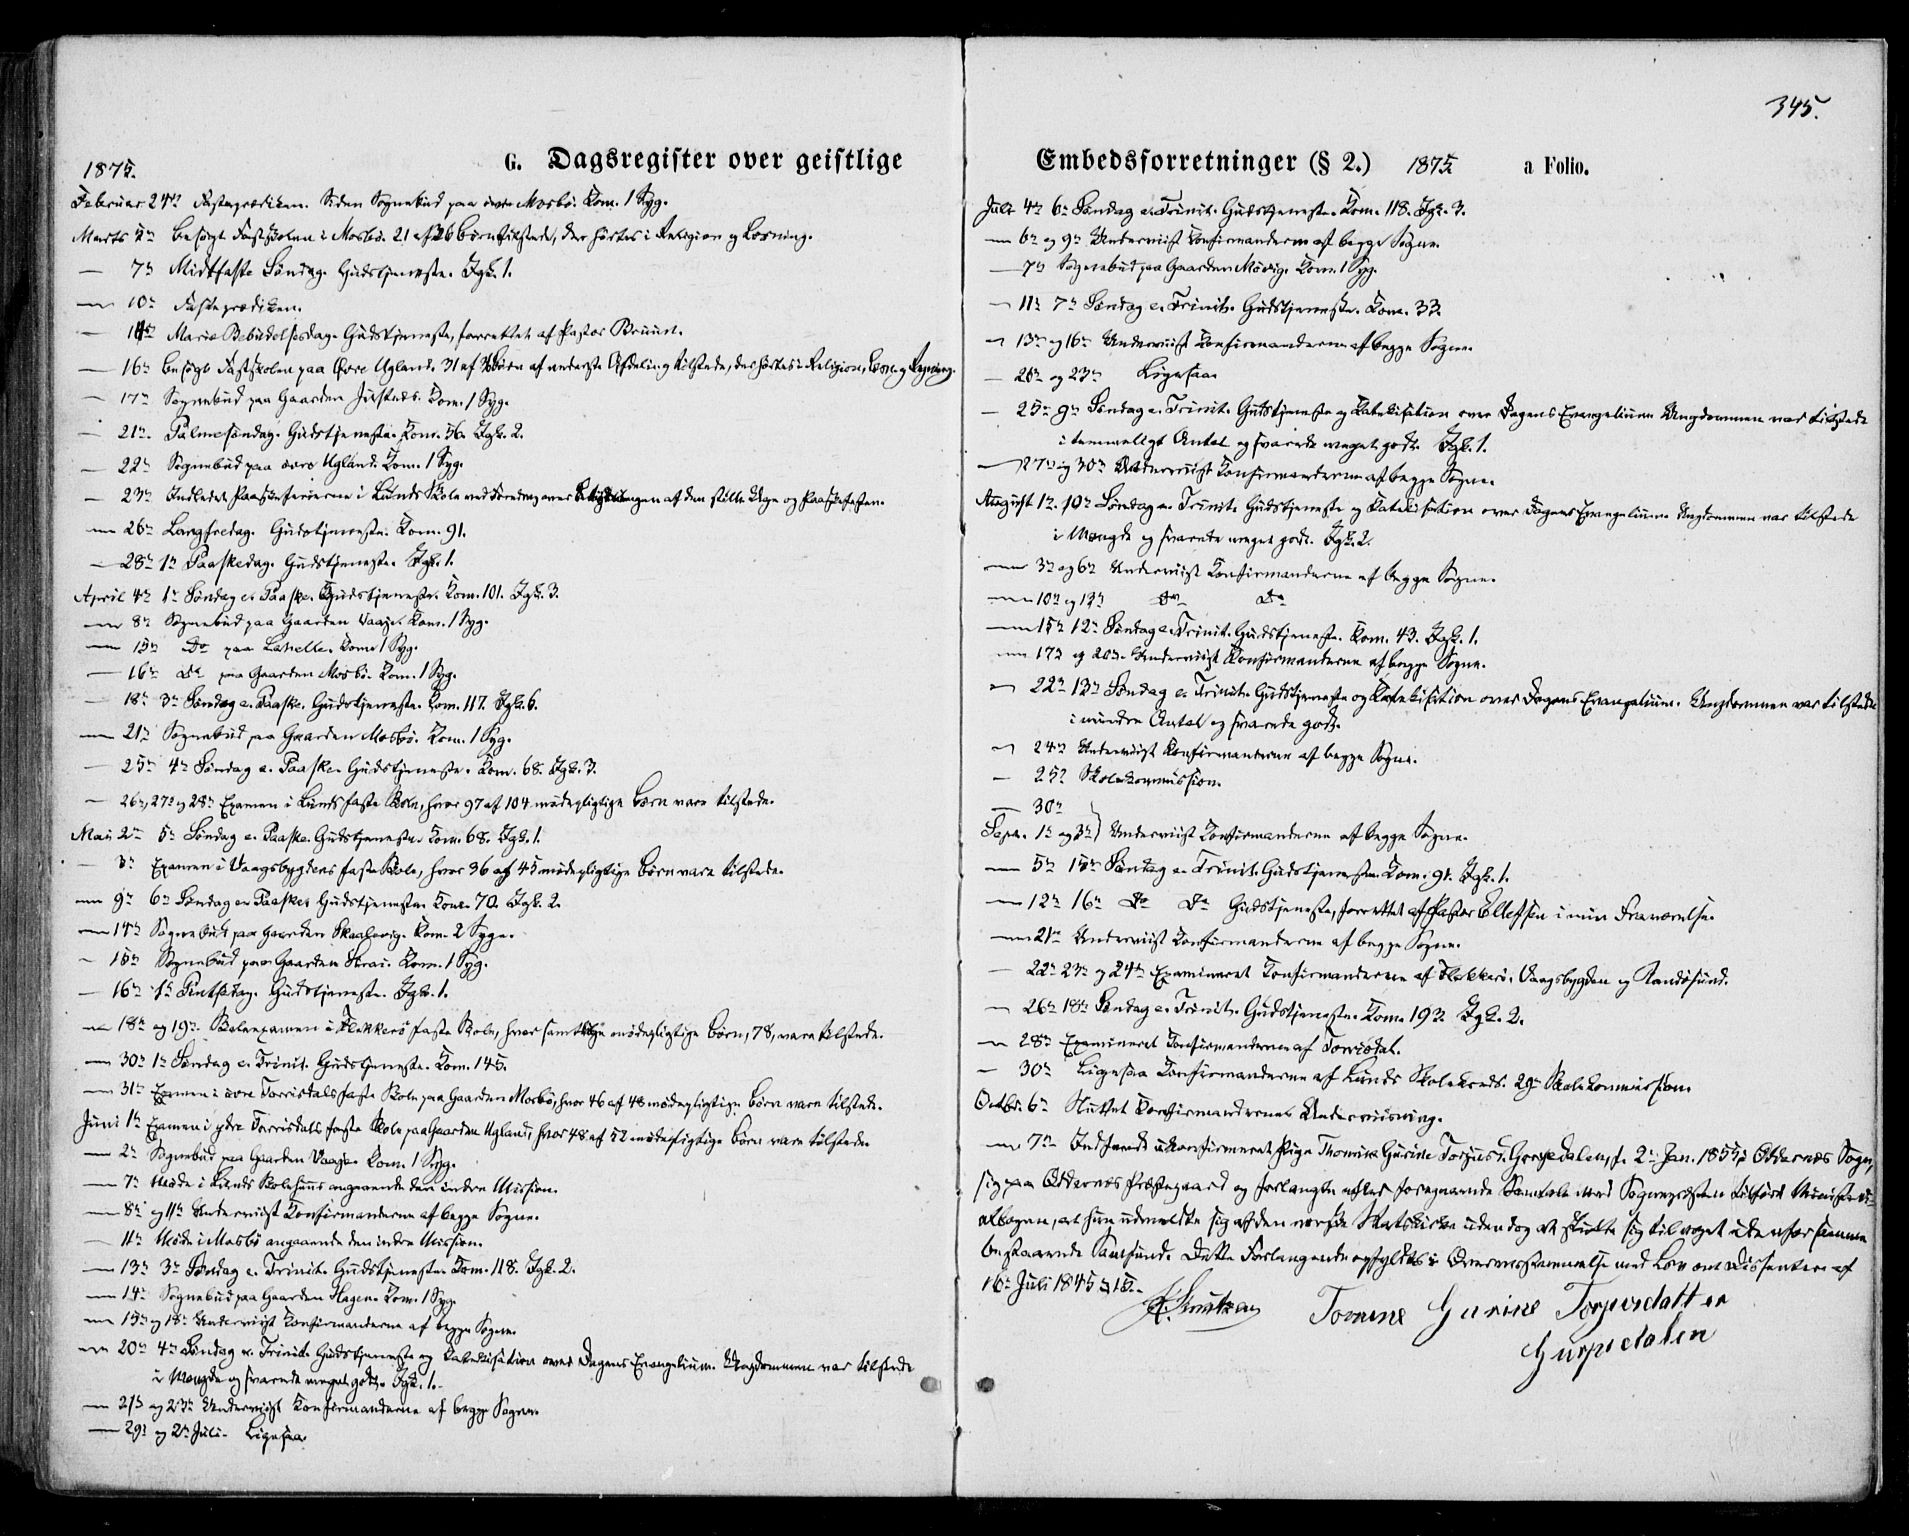 1875.
G. Dagsregister over geistlige
Februar 24de Fasteprædiken. Siden Sognebud paa øvre Mosbö. Kom. 1 Syg.
Marts 2de besøgt Fastskolen i Mosbö. 21 af 26 børn tilstede, der hørtes i Religion og Læsning.
— 7de Midtfaste Søndag. Gudstjeneste. Jgk. 1.
— 10de Fasteprædiken.
— 14de Mariæ Bebudelsesdag. Gudstjeneste, forrettet af Pastor Bruun.
— 16de besøgt Fastskolen paa Øvre Ugland. 31 af børn af nederste Afdeling tilstede, der hørtes i Religion, Læsn. og Regning.
— 17de Sognebud paa Gaarden Kom. 1 Syg.
— 21de Palmesøndag. Gudstjeneste. Kom. 56. Jgk. 2.
— 22de Sognebud paa øvre Ugland. Kom. 1 Syg.
— 23de Indledet Paaskeferierne i Lunds Skole ved Foredrag over Betydningen af den stille Uge og Paaskefesten.
— 26de Langfredag. Gudstjeneste. Kom. 91.
— 28de 1ste Paaskedag. Gudstjeneste. Jgk. 1.
April 4de 1ste Søndag e. Paaske. Gudstjeneste. Kom. 101. Jgk. 3.
— 8de Sognebud paa Gaarden Vaaje. Kom. 1 Syg.
— 15de Do paa Lahelle. Kom. 1 Syg.
— 16de Do paa Gaarden Mosbö. Kom. 1 Syg.
— 18de 3de Søndag e. Paaske. Gudstjeneste. Kom. 117. Jgk. 6.
— 21de Sognebud paa Gaarden Mosbö. Kom. 1 Syg.
— 25de 4de Søndag e. Paaske. Gudstjeneste. Kom. 68. Jgk. 3.
— 26de, 27de og 28de Examen i Lunds faste Skole, hvor 97 af 104 mødepligtige Børn vare tilstede.
Mai 2den 5te Søndag e. Paaske. Gudstjeneste. Kom. 68. Jgk. 1.
— 3de Examen i Vaagsbygdens faste Skole, hvor 36 af 45 mødepligtige Børn vare tilstede.
— 9de 6te Søndag e. Paaske. Gudstjeneste. Kom. 70. Jgk. 2.
— 14de Sognebud paa Gaarden Skaalevig. Kom. 2 Syge.
— 15de Sognebud paa Gaarden Strai. Kom. 1 Syg.
— 16de 1ste Pintsedag. Gudstjeneste. Jgk. 1.
— 18de og 19de Skoleexamen i Flekkerö faste Skole, hvor samtlige mødepligtige Børn, 78, vare tilstede.
— 30te 1ste Søndag e. Trinit. Gudstjeneste. Kom. 145.
— 31te Examen i øvre Torrisdals faste Skole paa Gaarden Mosbö, hvor 46 af 48 mødepligtige Børn vare tilstede.
Juni 1ste Examen i ydre Torrisdals faste Skole paa Gaarden Ugland, hvor 48 af 52 mødepligtige Børn vare tilstede.
— 2den Sognebud paa Gaarden Vaaje. Kom. 1 Syg.
— 7de Møde i Lunds Skolehuus angaaende den indre Mission.
— 8de og 11te Underviist Konfirmanderne af begge Sogne.
— 11te Møde i Mosbö angaaende den indre Mission.
— 13de 3de Søndag e. Trinit. Gudstjeneste. Kom. 118. Jgk. 2.
— 14de Sognebud paa Gaarden Hagen. Kom. 1 Syg.
— 15de og 18de Underviist Konfirmanderne af begge Sogne.
— 20de 4de Søndag e. Trinit. Gudstjeneste og Katekisation over Dagens Evangelium. Ungdommen var tilstede
i Mængde og svarede meget godt. Jgk. 1.
— 21de og 23de Underviist Konfirmanderne af begge Sogne.
— 29de og 2den Juli. Ligesaa.
345.
Embedsforretninger (§ 2.) 1875. a Folio.
Juli 4de 6te Søndag e. Trinit. Gudstjeneste. Kom. 118. Jgk. 3.
— 6te og 9de Underviist Konfirmanderne af begge Sogne.
— 7de Sognebud paa Gaarden Møvig. Kom. 1 Syg.
— 11te 7de Søndag e. Trinit. Gudstjeneste. Kom. 33.
— 13de og 16de Underviist Konfirmanderne af begge Sogne.
— 20de og 23de Ligesaa
— 25de 9de Søndag e. Trinit. Gudstjeneste og Katekisation over Dagens Evangelium. Ungdommen var tilstede
i temmeligt Antal og svarede meget godt. Jgk. 1.
— 27de og 30te Underviist Konfirmanderne af begge Sogne.
August 1ste 10de Søndag e. Trinit. Gudstjeneste og Katekisation over Dagens Evangelium. Ungdommen var tilstede
i Mængde og svarede meget godt. Jgk. 2.
— 3de og 6te Underviist Konfirmanderne af begge Sogne.
— 10de og 13de Do Do
— 15de 12te Søndag e. Trinit. Gudstjeneste. Kom. 43. Jgk. 1.
— 17de og 20de Underviist Konfirmanderne af begge Sogne.
— 22de 13de Søndag e. Trinit. Gudstjeneste og Katekisation over Dagens Evangelium. Ungdommen var tilstede
i mindre Antal og svarede godt.
— 24de Underviist Konfirmanderne af begge Sogne.
— 25de Skolekommission.
— 30te
Sept. 1ste og 3de } Underviist Konfirmanderne af begge Sogne.
— 5te 15de Søndag e. Trinit. Gudstjeneste. Kom. 91. Jgk. 1.
— 12te 16de Do Do Gudstjeneste, forrettet af Pastor Ellefsen i min Fraværelse.
— 21de Underviist Konfirmanderne af begge Sogne.
— 22de 23de og 24de Examineret Konfirmanderne af Flekkerö, Vaagsbygden og Randösund.
— 26de 18de Søndag e. Trinit. Gudstjeneste. Kom. 193. Jgk. 2.
— 28de Examineret Konfirmanderne af Torrisdal.
— 30te Ligesaa Konfirmanderne af Lunds Skolekreds. 29de Skolekommission.
Octbr. 6te Sluttet Konfirmandernes Underviisning.
— 7de Indfandt ukonfirmeret Pige Thomine Gurine Torjusd. Gurpedalen, f. 2den Jan. 1855 i Oddernes Sogn,
sig paa Oddernes Præstegaard og forlangte efter foregaaende Samtale med Sognepræsten tilført Ministeri-
albogen, at hun udmeldte sig af den norske Statskirke uden dog at slutte sig til noget udenfor samme
bestaaende Samfund. Dette Forlangende opfyldtes i Overensstemmelse med Lov om Dissentere af
16de Juli 1845 § 15.
Knutzen Tomine Gurine Torjusdatter
Gurpedalen